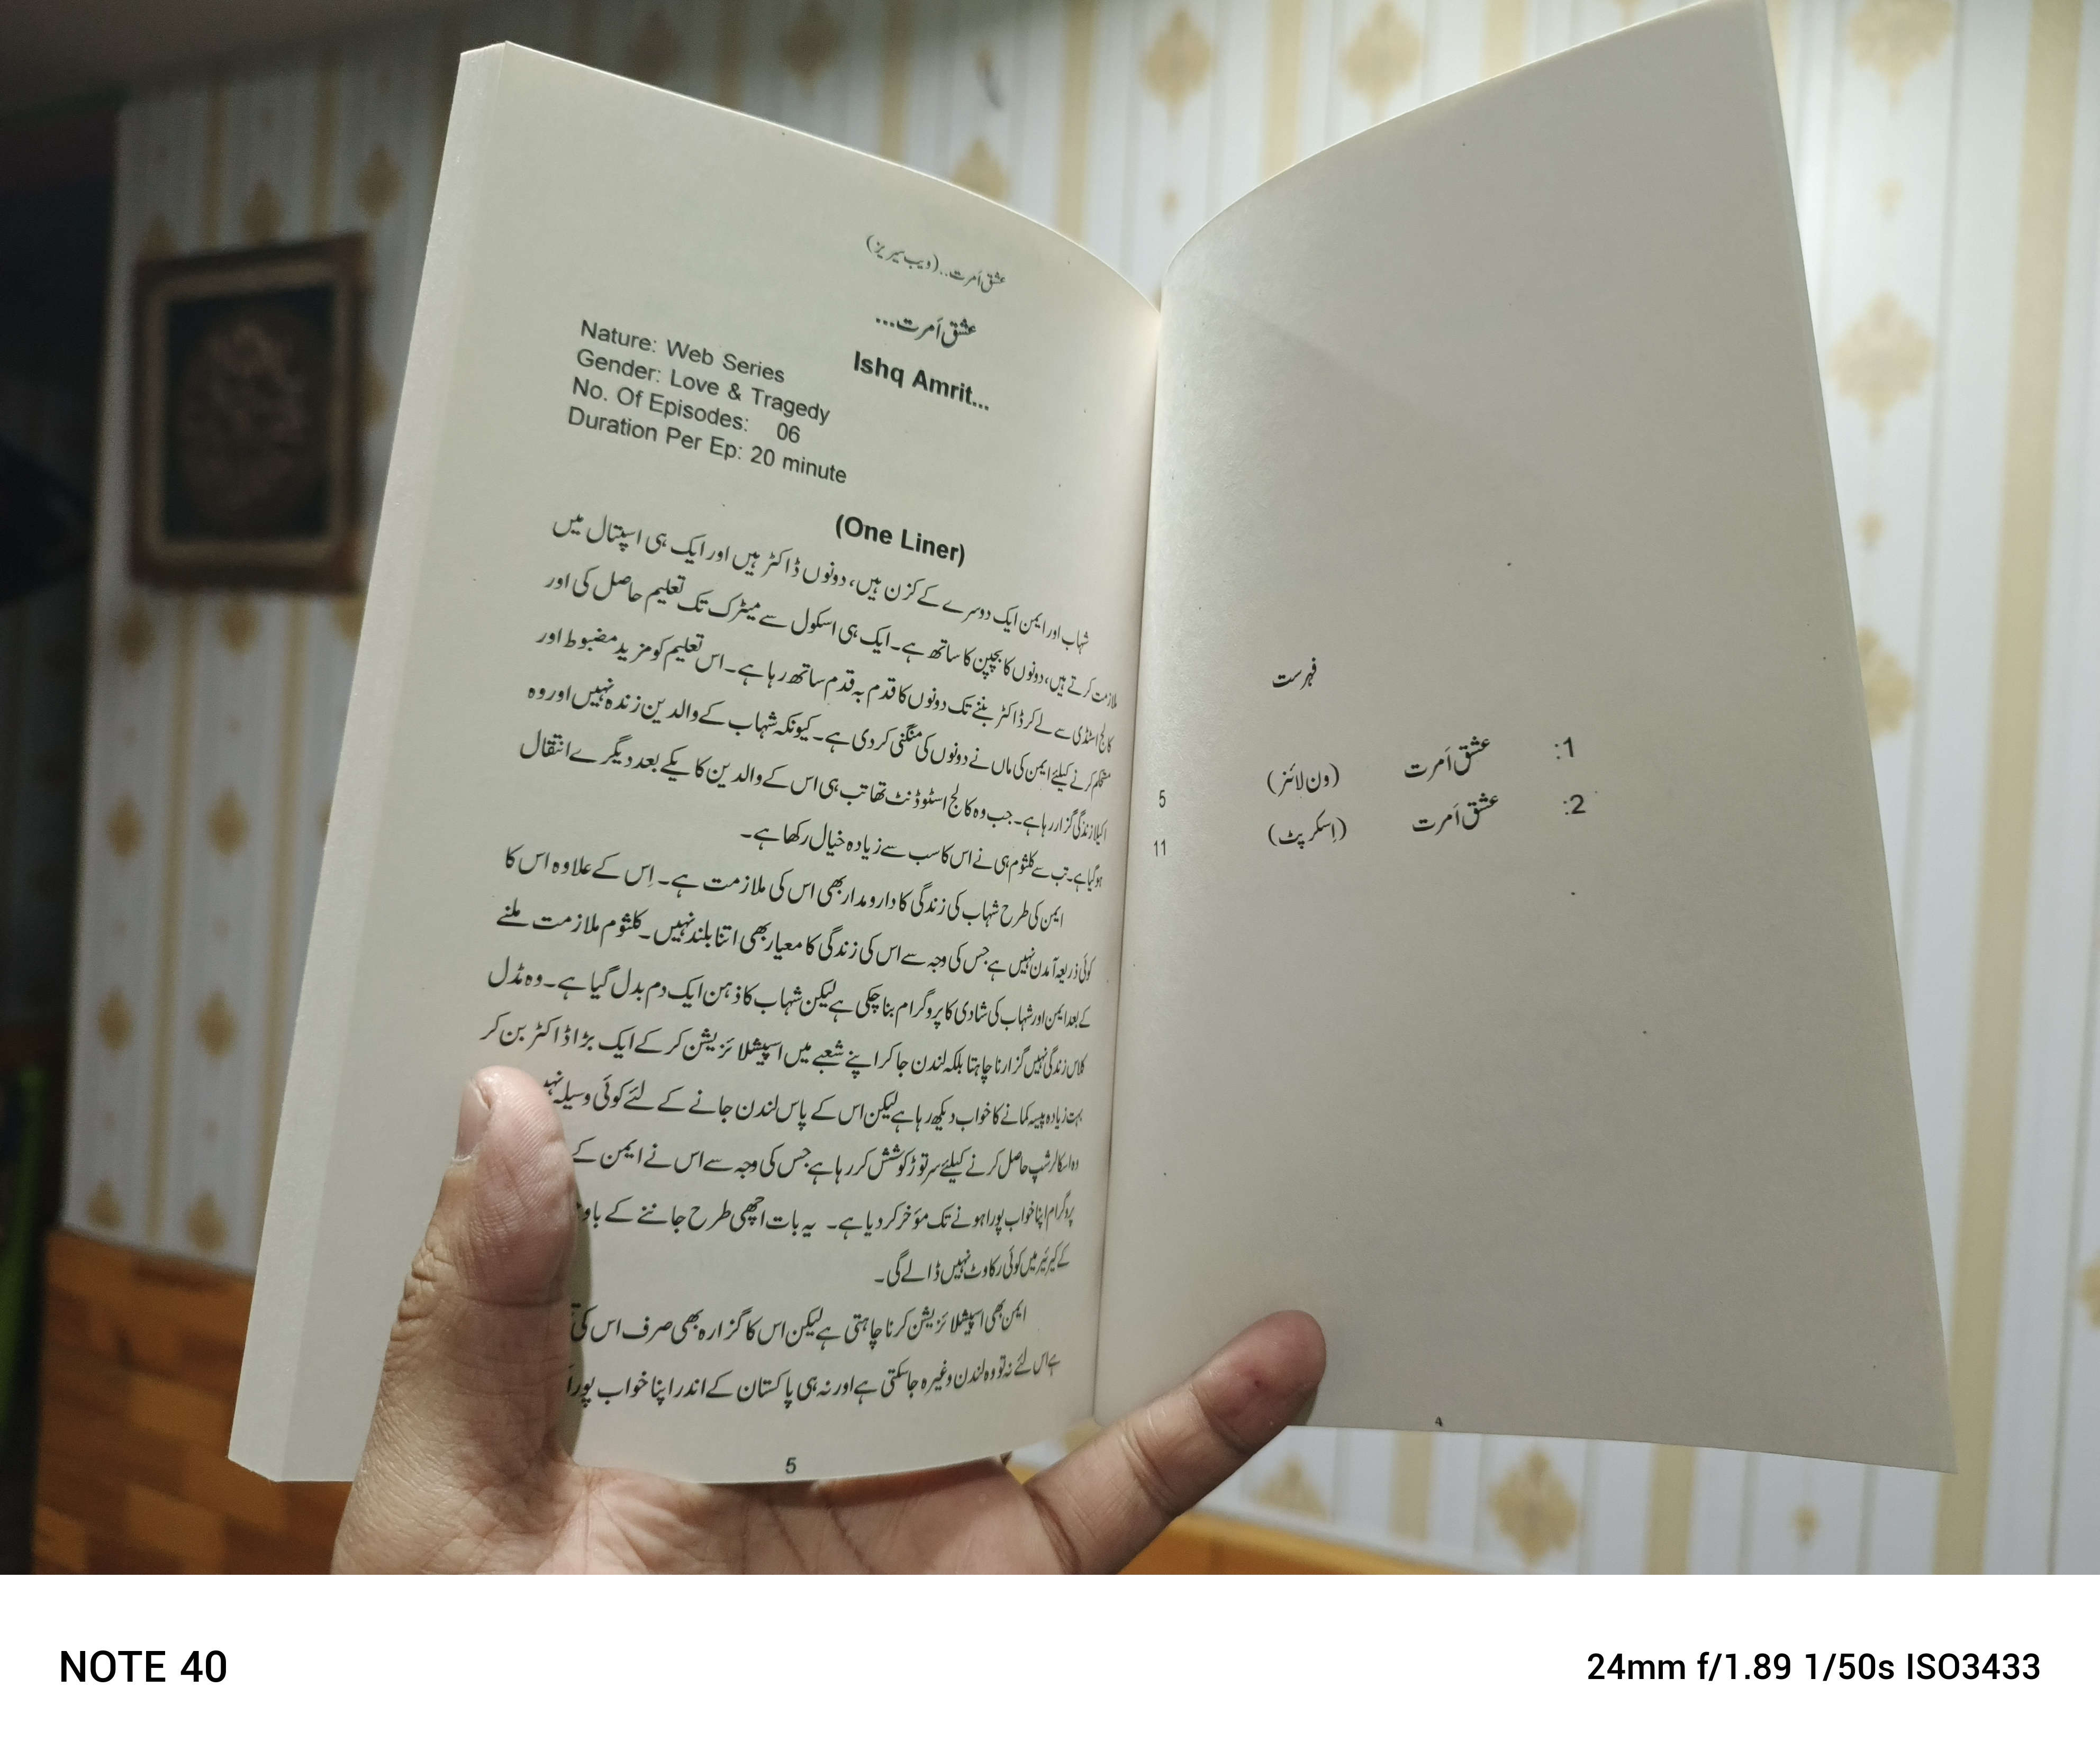 فہرست
1: عشق اَمرت (ون لائنز) 5
2: عشق اَمرت (اِسکرپٹ) 11
4
عشق اَمرت...(ویب سیریز)
عشق اَمرت...
Ishq Amrit...
Nature: Web Series
Gender: Love & Tragedy
No. Of Episodes: 06
Duration Per Ep: 20 minute
(One Liner)
شہاب اور ایمن ایک دوسرے کے کزن ہیں، دونوں ڈاکٹر ہیں اور ایک ہی اسپتال میں
ملازمت کرتے ہیں، دونوں کا بچپن کا ساتھ ہے۔ ایک ہی اسکول سے میٹرک تک تعلیم حاصل کی اور
کالج اسٹڈی سے لے کر ڈاکٹر بننے تک دونوں کا قدم بہ قدم ساتھ رہا ہے۔ اس تعلیم کو مزید مضبوط اور
مستحکم کرنے کیلئے ایمن کی ماں نے دونوں کی منگنی کردی ہے۔ کیونکہ شہاب کے والدین زندہ نہیں اور وہ
اکیلا زندگی گزار رہا ہے۔ جب وہ کالج اسٹوڈنٹ تھا تب ہی اس کے والدین کا یکے بعد دیگرے انتقال
ہوگیا ہے۔ تب سے کلثوم ہی نے اس کا سب سے زیادہ خیال رکھا ہے۔
ایمن کی طرح شہاب کی زندگی کا دارومدار بھی اس کی ملازمت ہے۔ اِس کے علاوہ اس کا
کوئی ذریعہ آمدن نہیں ہے جس کی وجہ سے اس کی زندگی کا معیار بھی اتنا بلند نہیں۔ کلثوم ملازمت ملنے
کے بعد ایمن اور شہاب کی شادی کا پروگرام بنا چکی ہے لیکن شہاب کا ذہن ایک دم بدل گیا ہے۔ وہ مڈل
کلاس زندگی نہیں گزارنا چاہتا بلکہ لندن جا کر اپنے شعبے میں اسپیشلائزیشن کر کے ایک بڑا ڈاکٹر بن کر
بہت زیادہ پیسہ کمانے کا خواب دیکھ رہا ہے لیکن اس کے پاس لندن جانے کے لئے کوئی وسیلہ
وہ اسکالرشپ حاصل کرنے کیلئے سر توڑ کوشش کر رہا ہے جس کی وجہ سے اس نے ایمن کے
پروگرام اپنا خواب پورا ہونے تک مؤخر کر دیا ہے۔ یہ بات اچھی طرح جاننے کے
کے کیرئیر میں کوئی رکاوٹ نہیں ڈالے گی۔
ایمن بھی اسپیشلائزیشن کرنا چاہتی ہے لیکن اس کا گزارہ بھی صرف اس کی
ہے اس لئے نہ تو وہ لندن وغیرہ جا سکتی ہے اور نہ ہی پاکستان کے اندر اپنا خواب پورا
5
NOTE 40
24mm f/1.89 1/50s ISO3433